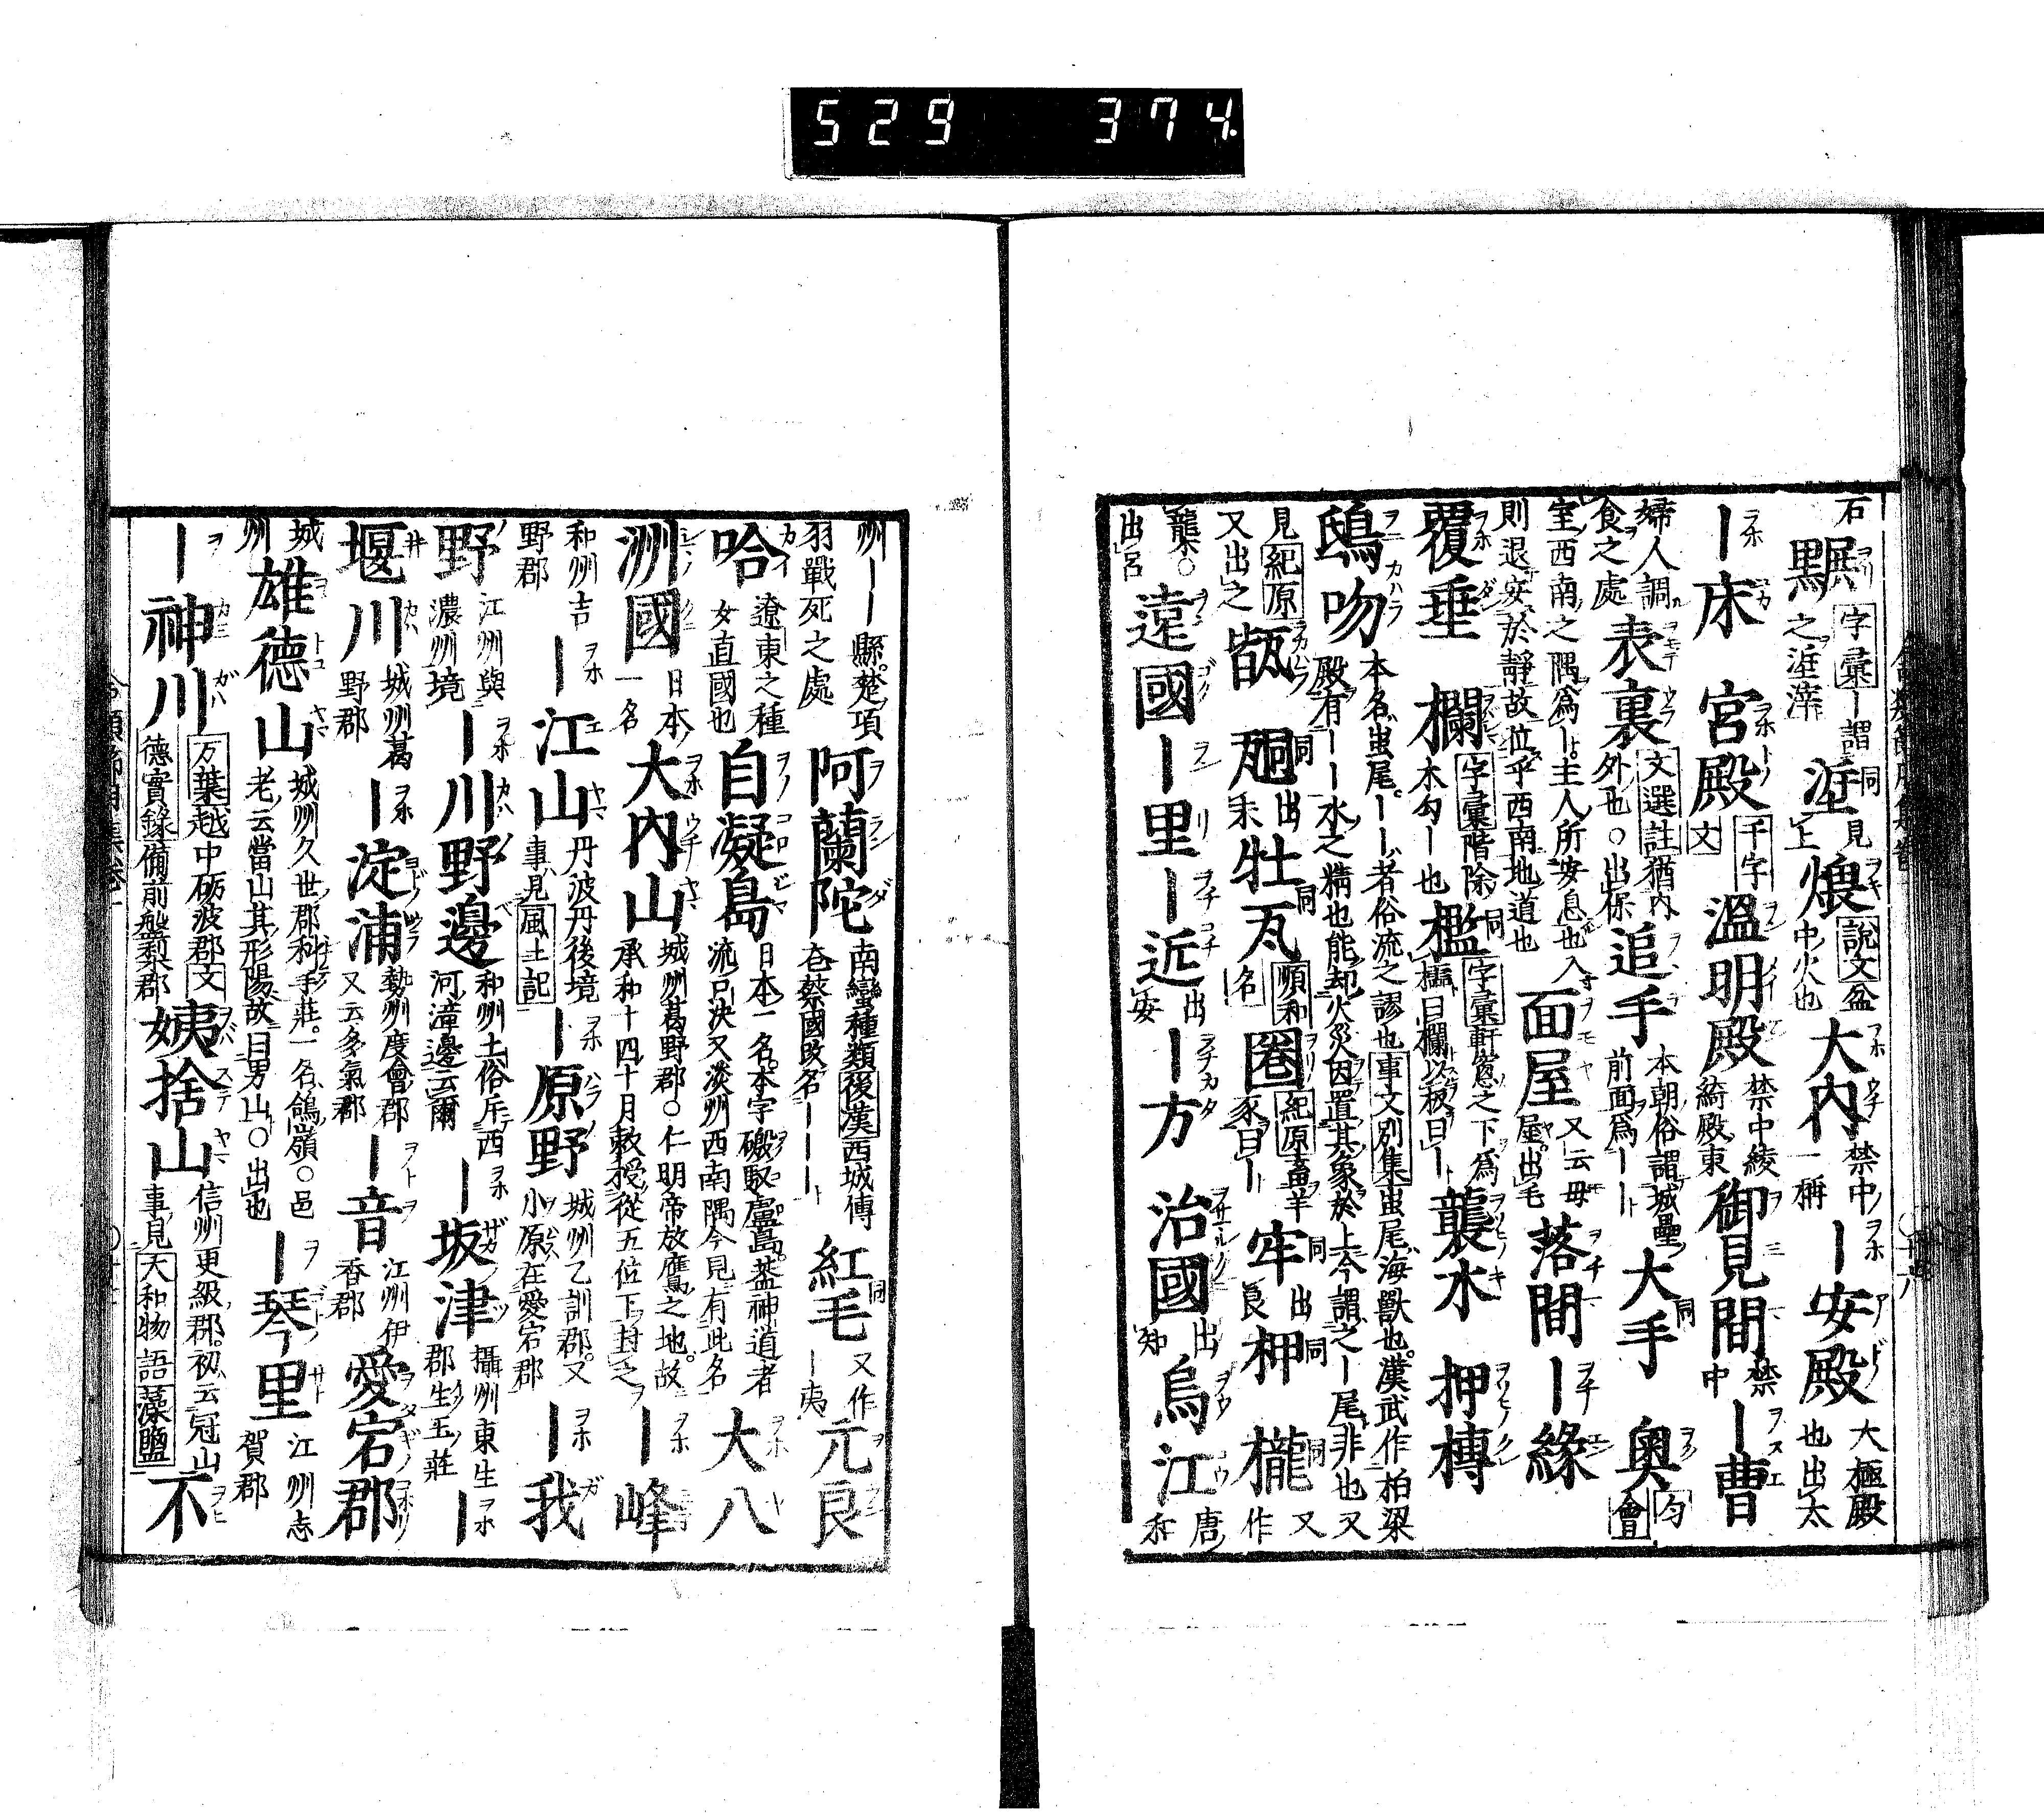 529 374
石䵝字彙ー謂之𡋯滓𡋯同見上煨説文盆中火也大内禁中一稱ー安殿大極殿也出太
ー床宮殿千字文溫明殿禁中綾綺殿東御見間禁中ー曹
婦人調食之處表裏文選註猶内外也○出保追手本朝俗謂城壘前面爲ーー大手同奥匀會
室西南之隅爲ー主人所安息也入則退安於靜故位乎西南地道也面屋又云母屋出毛落間ー緣
覆垂欄字彙階除木勾ー也檻同字彙軒窓之下爲櫺曰欄以板曰ー襲水押槫
鴟吻本名蚩尾ーー者俗流之謬也事文別集蚩尾海獸也漢武作柏梁殿有ーー水之精也能却火災因置其象於上今謂之ー尾非也又
見紀原又出之瓦同出牡瓦同順和名圈紀原畜羊豕曰ー牢同出良柙同櫳同又作
龒○出呂遠國ー里ー近出安ー方治國出知烏江唐和
州ーー縣楚項羽戰死之處阿蘭陀南蠻種類後漢西域傳㚎蔡國改名ーーー紅毛同又作ー夷兀良
哈遼東之種女直國也自凝島日本一名本字磤馭盧島葢神道者流口決又淡州西南隅今見有此名大八
洲國日本一名大内山城州葛野郡○仁明帝放鷹之地故承和十四十月敕授從五位下封之ー峰
和州吉野郡ー江山丹波丹後境事見風土記ー原野城州乙訓郡又小原在愛宕郡ー我
野江州與濃州境ー川野邊和州土俗斥西河漳邊云爾ー坂津攝州東生郡生玉莊ー
堰川城州葛野郡ー淀浦勢州度會郡又云多氣郡ー音江州伊香郡愛宕郡
城州雄德山城州久世郡科手莊一名鴿嶺○邑老云當山其形陽故曰男山○出也ー琴里江州志賀郡
ー神川万葉越中砺波郡文德實錄備前磐梨郡姨捨山信州更級郡初云冠山事見大和物語藻鹽不